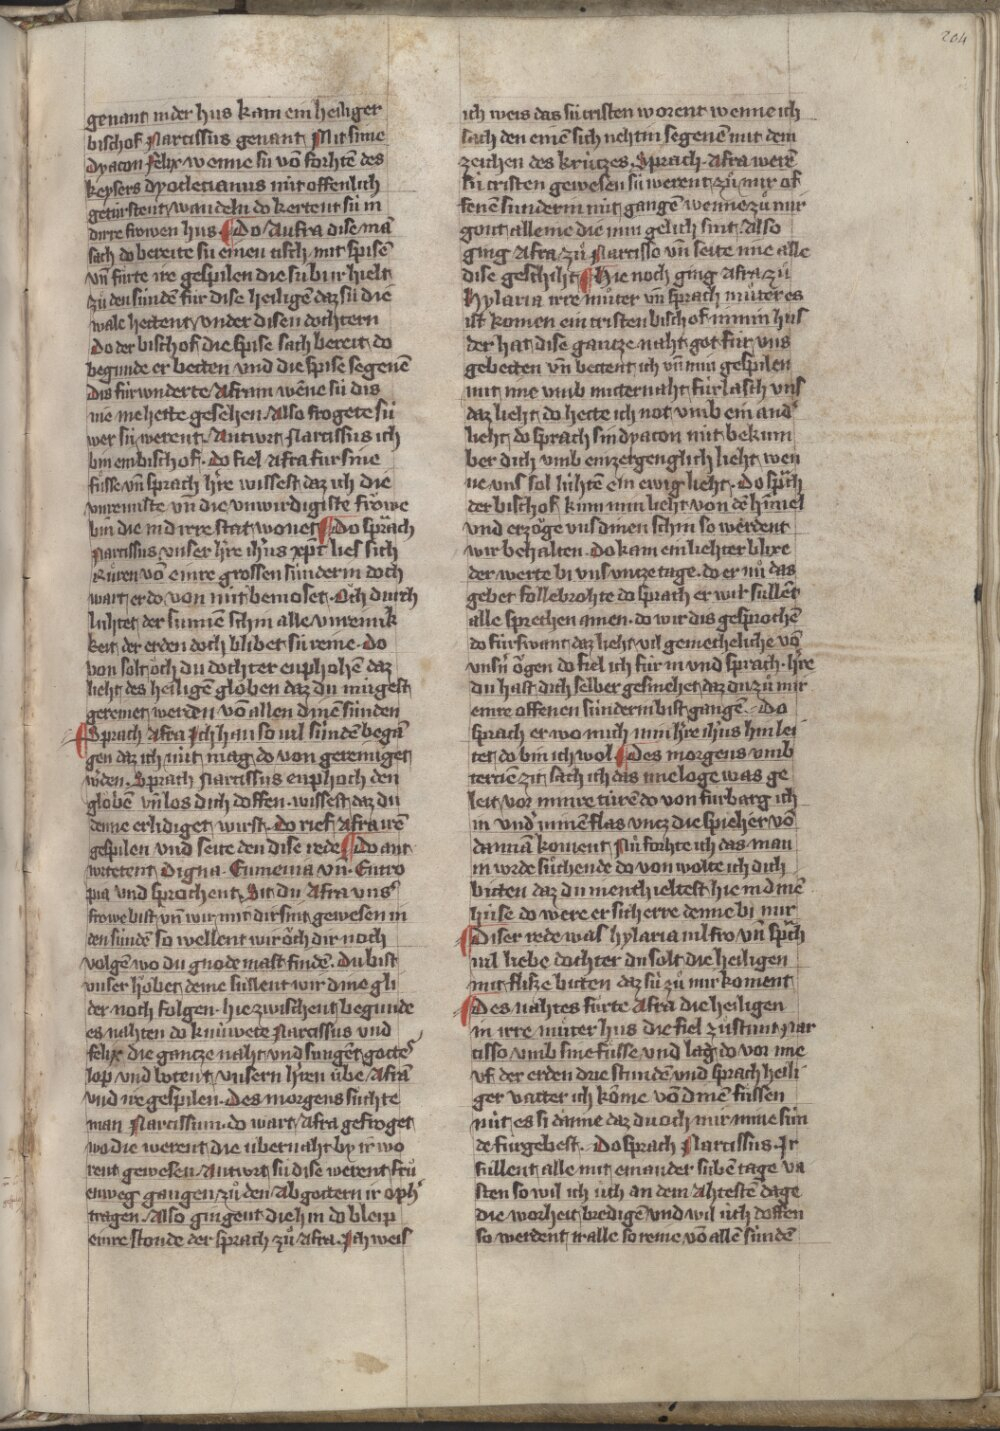 204
genant in der hus kam ein heiliger
bischof Narcissus genant Mit sime
dyacon felix wenne sü vō forhtē des
keysers dyocletianus nüt offenlich
getürstent wandeln do kertent sü in
dirre frowen hus ¶ Do Aufra dise mā
sach do bereite sü einen tisch mit spisē
vn̄ fůrte ire gespilen die sü bi ir hielt
zů den sündē für dise heiligē daz sü die
wale hettent vnder disen dochtern
Do der bischof die spise sach bereit do
begunde er betten vnd die spise segenē
Dis fürwnderte Afram wēne sü dis
me me hette gesehen Also frogete sü
wer sü werent Antwrt Narcissus ich
bin ein bischof · do fiel Afra für sine
füsse vn̄ sprach h're wissest daz ich die
vnreinste vn̄ die vnwirdigiste frowe
bin die in d irre stat wonet ¶ Do sprach
Narcissus vnser h're ih'us xp̄t lies sich
Růren vō einre grossen sünderin doch
wart er do von nüt bemoset · Och durch
lühtet der sunnē schin alle vnreinik
keit der erden doch blibet sü reine · do
von solt och du dochter enphohen daz
lieht des heiligē gloͤben daz du mügest
gereinet werden vō allen dinē sünden
¶ Sprach Afra Ich han so vil sündē begā
gen daz ich nüt mag do von gereiniget
w'den · Sprach Narcissus enphoch den
gloͤbē vn̄ los dich doͤffen · wissest daz du
denne erlidiget wirst · do rief Afra irē
gespilen vnd seite den dise rede ¶ Do ant
wrtetent Digna · Eumenia vn̄ · Eutro
pia vnd sprochent Sit du Afra vns'
frowe bist vn̄ wir mit dir sint gewesen in
den sündē so wellent wir oͤch dir noch
volgē wo du gnode maht finden · Du bist
vnser hoͤbet denne süllent wir dine gli
der noch folgen · hie zwischent begunde
es nahten do knüwete Narcissus vnd
felix die gantze naht vnd sungēt gottes
lop vnd botent vnsern h'ren übe' Afrā
vnd ire gespilen · Des morgens sůchte
man Narcissum · do wart Afra gefroget
wo die werent die übernaht by ir wo
rent gewesen Antwrt sü dise werent frů
enweg gangen zů den Abgoͤttern ir oph'
tragen · Also gingent die hin do bleip
einre stonde der sprach zů Afra · Ich weis
ich weis das sü cristen worent wenne ich
sach den einē sich nehtin segenē mit dem
zeichen des krützes · Sprach · Afra werē
sü cristen gewesen sü werent zů mir of
fenē sünderin nüt gangē wenne zů mir
gont alleine die min gelich sint Also
ging Afra zů Narcisso vn̄ seite ime alle
dise geschiht ¶ Hie noch ging Afra zů
Hylaria irre můter vn̄ sprach můter es
ist komen ein cristen bischof in min hus
der hat dise gantze naht got für vns
gebetten vn̄ bettent ich vn̄ min gespilen
mit ime vmb mitternaht fürlasch vns
daz lieht do hette ich not vmb ein and'
lieht do sprach sin dyacon nüt bekum
ber dich vmb ein zergenglich lieht wen
ne vns sol lühtē ein ewig lieht · Do sp̄ch
der bischof kum min lieht von dē hīmel
vnd erzoͤge vns dinen schin so werdent
wir behalten · Do kam ein liehter blixe
der werte bi vns vntze tage · do er nů das
gebet follebrohte do sprach er wir süllēt
alle sprechen amen · do wir dis gesprochē
do fürswant daz lieht vil gemecheliche vō
vns'n oͤgen do fiel ich für in vnd sprach · h're
du hast dich selber gesmehet daz du zů mir
einre offenen sünderin bist gangē · Do
sprach er wo mich min h're ih'us hin lei
tet do bin ich wol ¶ Des morgens vmb
tercie zit sach ich das ime loge was ge
leit vor minre türē do von fürbarg ich
in vnder minē flas vncz die spieher vō
dannā koment Nů forhte ich das man
in wrde sůchende do von wolte ich dich
bitten daz du in enthieltest hie in dinē
huse do were er sicherre denne bi mir
¶ Diser rede was hylaria vil fro vn̄ sp̄ch
vil liebe dochter du solt die heiligen
mit flisze bitten daz sü zů mir koment
¶ Des nahtes fůrte Afra die heiligen
in irre můter hus die fiel zůstunt Nar
cisso vmb sine füsse vnd lag do vor ime
vf der erden drie stundē vnd sprach heili
ger vatter ich kōme vō dinē füssen
nüt es si danne daz du och mir mine sün
de fürgebest · Do sprach Narcissus · Ir
süllent alle mit einander sübē tage va
sten so wil ich üch an dem Ahtestē dage
die worheit bredigē vnd wil üch doͤffen
so werdent ir alle so reine vō allē sündē